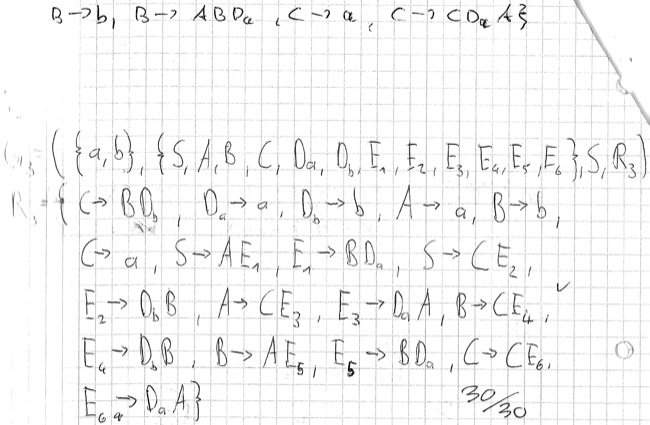 B→b, B→ ABDa, C→a, C→ CDaA}
G3=({a,b}, {S, A, B, C, Da, Db, E1, E2, E3, E4, E5, E6}, S, R3)
R3={C→ BDb, Da→a, Db→b, A→a, B→b,
C→a, S→AE1, E1→BDa, S→CE2,
E2→DbB, A→CE3, E3→DaA, B→CE4, ✓
E4→DbB, B→AE5, E5→BDa, C→CE6,
E6→DaA}
30/30